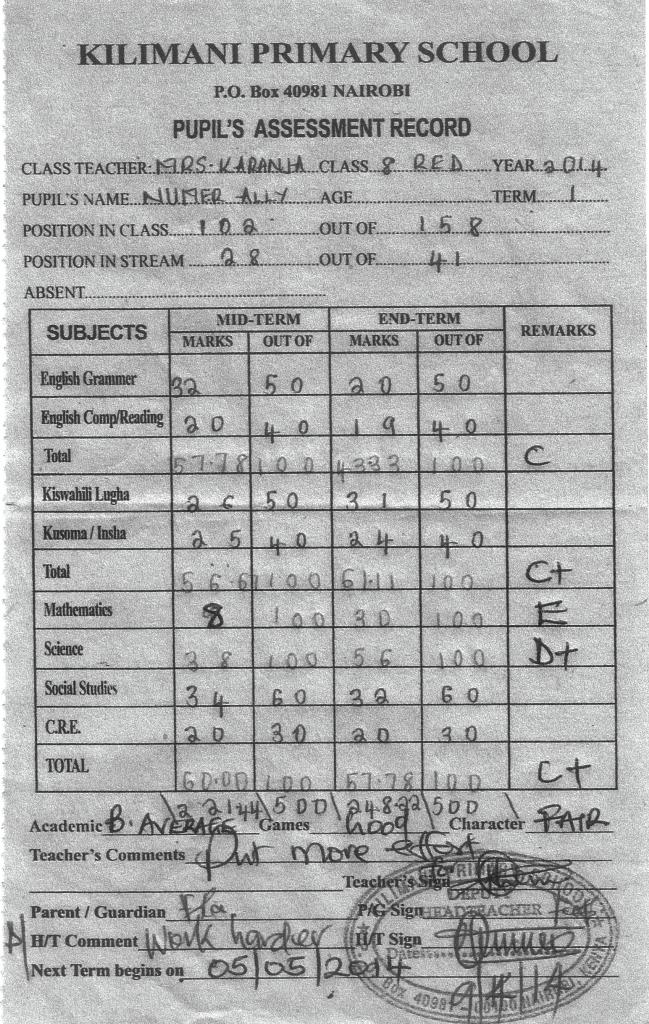 KILIMANI PRIMARY SCHOOL
P.O. Box 40981 NAIROBI
PUPIL'S ASSESSMENT RECORD
CLASS TEACHER: MRS. KARANJA CLASS 8 RED YEAR 2014
PUPIL'S NAME NUMER ALLY AGE TERM 1
POSITION IN CLASS 102 OUT OF 158
POSITION IN STREAM 28 OUT OF 41
ABSENT
SUBJECTS MID-TERM END-TERM REMARKS
MARKS OUT OF MARKS OUT OF
English Grammer 32 50 20 50
English Comp/Reading 20 40 19 40
Total 57.78 100 4333 100 C
Kiswahili Lugha 26 50 31 50
Kusoma / Insha 25 40 24 40
Total 56.67 100 61.11 100 C+
Mathematics 8 100 30 100 E
Science 38 100 56 100 D+
Social Studies 34 60 32 60
C.R.E. 20 30 20 30
TOTAL 60.00 100 57.78 100 C+
221.44 500 248.22 500
Academic B. AVERAGE Games Good Character FAIR
Teacher's Comments Put more effort
Teacher's Sign
Parent / Guardian P/G Sign
H/T Comment Work harder H/T Sign
Next Term begins on 05/05/2014
DEPUTY
HEADTEACHER
Date
BOX 40981 - 00100 NAIROBI, KENYA